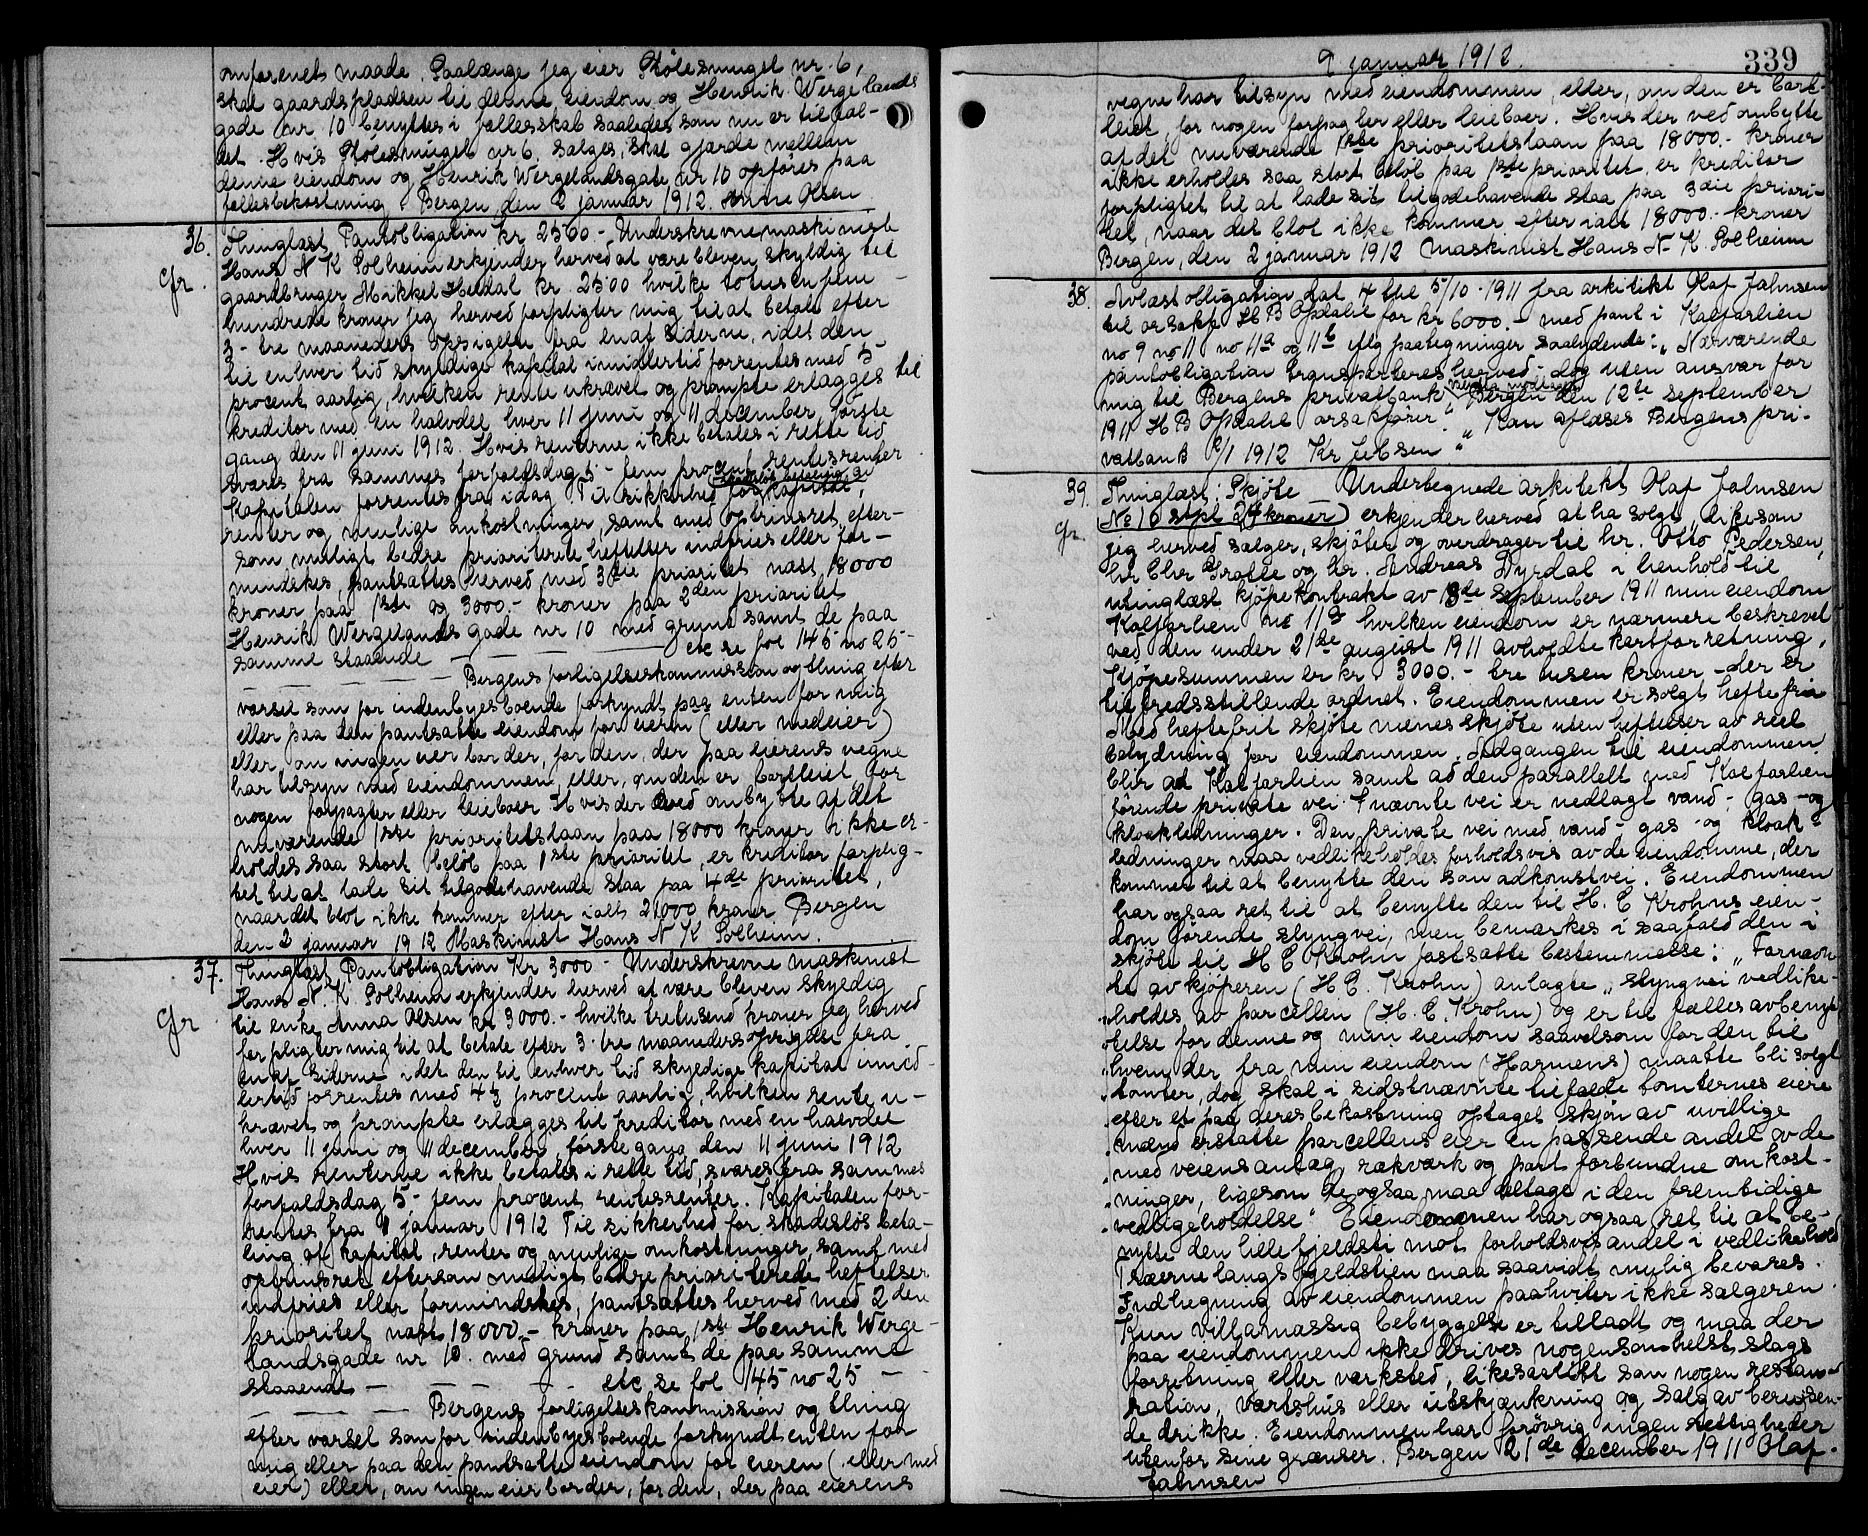 omforenet maade. Saalænge jeg eier Stølesmuget nr. 6,
skal gaardspladsen til denne eiendom og Henrik Wergelands
gade nr 10 benyttes i fællesskab saaledes som nu er tilfæl-
det. Hvis Stølesmuget nr 6. sælges, skal gjærde mellem
denne eiendom og Henrik Wergelandsgate nr 10 opføres paa
fællesbekostning. Bergen den 2 januar 1912. Anna Olsen
36. Thinglæst Pantobligation kr 2500.- Underskrevne maskinist
Hans N K Solheim erkjender herved at være bleven skyldig til
gr. gaardbruger Mikkel Heldal kr. 2500 hvilke totusen fem
hundrede kroner jeg herved forpligter mig til at betale efter
3- tre maaneders opsigelse fra en af siderne, idet den
til enhver tid skyldige kapital imidlertid forrentes med 5-
procent aarlig, hvilken rente ukrævet og prompte erlægges til
kreditor med en halvdel hver 11 juni og 11 december, første
gang den 11 juni 1912. Hvis renterne ikke betales i rette tid
svares fra sammes forfaldsdag 5- fem procent rentesrenter
Kapitalen forrentes fra idag Til sikkerhed for skadesløs betaling av kapital,
renter og mulige omkostninger, samt med oprinsret efter-
som muligt bedre prioriterte heftelser indfries eller for-
mindskes, pantsættes herved med 3die prioritet næst 18000
kroner paa 1ste og 3000.- kroner paa 2den prioritet
Henrik Wergelands gade nr 10 med grund samt de paa
samme staaende - - - etc se fol 145 no 25-
- - - Bergens forligelseskommission og thing efter
varsel som for indenbyes boende forkyndt paa enten for mig
eller paa den pantsatte eiendom for eieren (eller medeier)
eller, om ingen eier bor der, for den, der paa eierens vegne
har tilsyn med eiendommen, eller, om den er bortleiet, for
nogen forpagter eller leieboer Hvis der ved ombytte af det
nuværende 1ste prioritetslaan paa 18000 kroner ikke er-
holdes saa stort beløb paa 1ste prioritet, er kreditor forplig-
tet til at lade sit tilgodehavende staa paa 4de prioritet,
naar det blot ikke kommer efter ialt 21000 kroner. Bergen
den 2 januar 1912 Maskinist Hans N K Solheim.
37. Thinglæst Pantobligation Kr 3000- Underskrevne maskinist
Hans N. K Solheim erkjender herved at være bleven skyldig
gr til enke Anna Olsen kr 3000.- hvilke tretusend kroner jeg herved
forpligter mig til at betale efter 3- tre maaneders opsigelse fra
en af siderne idet den til enhver tid skyldige kapital imid-
lertid forrentes med 4½ procent aarlig, hvilken rente u-
krævet og prompte erlægges til kreditor med en halvdel
hver 11 juni og 11 december, første gang den 11 juni 1912
Hvis renterne ikke betales i rette tid, svares fra sammes
forfaldsdag 5- fem procent rentesrenter. Kapitalen for-
rentes fra 1 januar 1912 Til sikkerhed for skadesløs beta-
ling af kapital, renter og mulige omkostninger, samt med
oprinsret eftersom muligt bedre prioriterede heftelser
indfries eller formindskes, pantsættes herved med 2den
prioritet næst 18000.- kroner paa 1ste Henrik Werge-
landsgade nr 10. med grund samt de paa samme
staaende - - - etc se fol 145 no 25 -
- - - Bergens forligelseskommission og thing
efter varsel som for indenbyesboende forkyndt enten for
mig eller paa den pantsatte eiendom for eieren (eller med
eier) eller, om ingen eier bor der, for den, der paa eierens
2 januar 1912. 339
vegne har tilsyn med eiendommen, eller, om den er bort-
leiet, for nogen forpagter eller leieboer. Hvis der ved ombytte
af det nuværende 1ste prioritetslaan paa 18000.- kroner
ikke erholdes saa stort beløb paa 1ste prioritet er kreditor
forpligtet til at lade sit tilgodehavende staa paa 3die priori-
tet, naar det blot ikke kommer efter ialt 18000.- kroner
Bergen, den 2 januar 1912 Maskinist Hans N. K. Solheim
38. Avlæst obligation dat 4 thl 5/10-1911 fra arkitekt Olaf Jahnsen
til orsakf H B Opdahl for kr 6000.- med pant i Kalfarlien
no 9 no 11 no 11a og 11b iflg paategninger saalydende: "Nærværende
pantobligation transporteres herved - dog uten ansvar for
mig til Bergens privatbank Bergen den 12te september
1911 H B Opdahl orsakfører." "Kan aflæses Bergens pri-
vatbank 2/1 1912 Kr Jebsen"
39. Thinglæst: Skjøte Undertegnede arkitekt Olaf Jahnsen
gr. (No 1 6 stpl 24 kroner) erkjender herved at ha solgt, likesom
jeg herved sælger, skjøter og overdrager til hr. Otto Pedersen,
hr Chr Gratte og hr. Andreas Dyrdal i henhold til
thinglæst kjøpekontrakt av 18de september 1911 min eiendom
Kalfarlien no 11a hvilken eiendom er nærmere beskrevet
ved den under 21de august 1911 avholdte kartforretning,
Kjøpesummen er kr 3000.- tre tusen kroner - der er
tilfredsstillende ordnet. Eiendommen er solgt heftefri
Med heftefrit skjøte menes skjøte uten heftelser av reel
betydning for eiendommen. Adgangen til eiendommen
blir ad Kalfarlien samt ad den parallelt med Kalfarlien
førende private vei. I nævnte vei er nedlagt vand-, gas- og
kloakledninger. Den private vei med vand- gas- og kloak-
ledninger maa vedlikeholdes forholdsvis av de eiendomme, der
kommer til at benytte den som adkomstvei. Eiendommen
har ogsaa ret til at benytte den til H. E Krohns eien-
dom førende slyngvei, men bemerkes i saafald den i
skjøte til H E Krohn fastsatte bestemmelse: "Fornævn
te av kjøperen (H E. Krohn) anlagte "slyngvei vedlike-
"holdes av parcellen (H. E. Krohn) og er til fælles avbenyt
"telse for denne og min eiendom saavelsom for den til
"hvem der fra min eiendom (Harmens) maatte bli solgt
"tomter, dog skal i sidstnævnte tilfælde tomternes eiere
"efter et paa deres bekostning optaget skjøn av uvillige
"mænd erstatte parcellens eier en passende andel av de
"med veiens anlæg, rækværk og port forbundne omkost-
"ninger, ligesom de ogsaa maa deltage i den fremtidige
"vedligeholdelse" Eiendommen har ogsaa ret til at be-
nytte den lille fjeldsti mot forholdsvis andel i vedlikehold
Træerne langs fjeldstien maa saavidt mulig bevares.
Indhegning av eiendommen paahviler ikke sælgeren.
Kun villamæssig bebyggelse er tilladt og maa der
paa eiendommen ikke drives nogensomhelst slags
forretning eller verksted, likesaalitt som nogen restau-
ration, vertshus eller utskjænkning og salg av berusen-
de drikke. Eiendommen har forøvrig ingen rettigheder
utenfor sine grænser. Bergen 21de december 1911 Olaf
Jahnsen